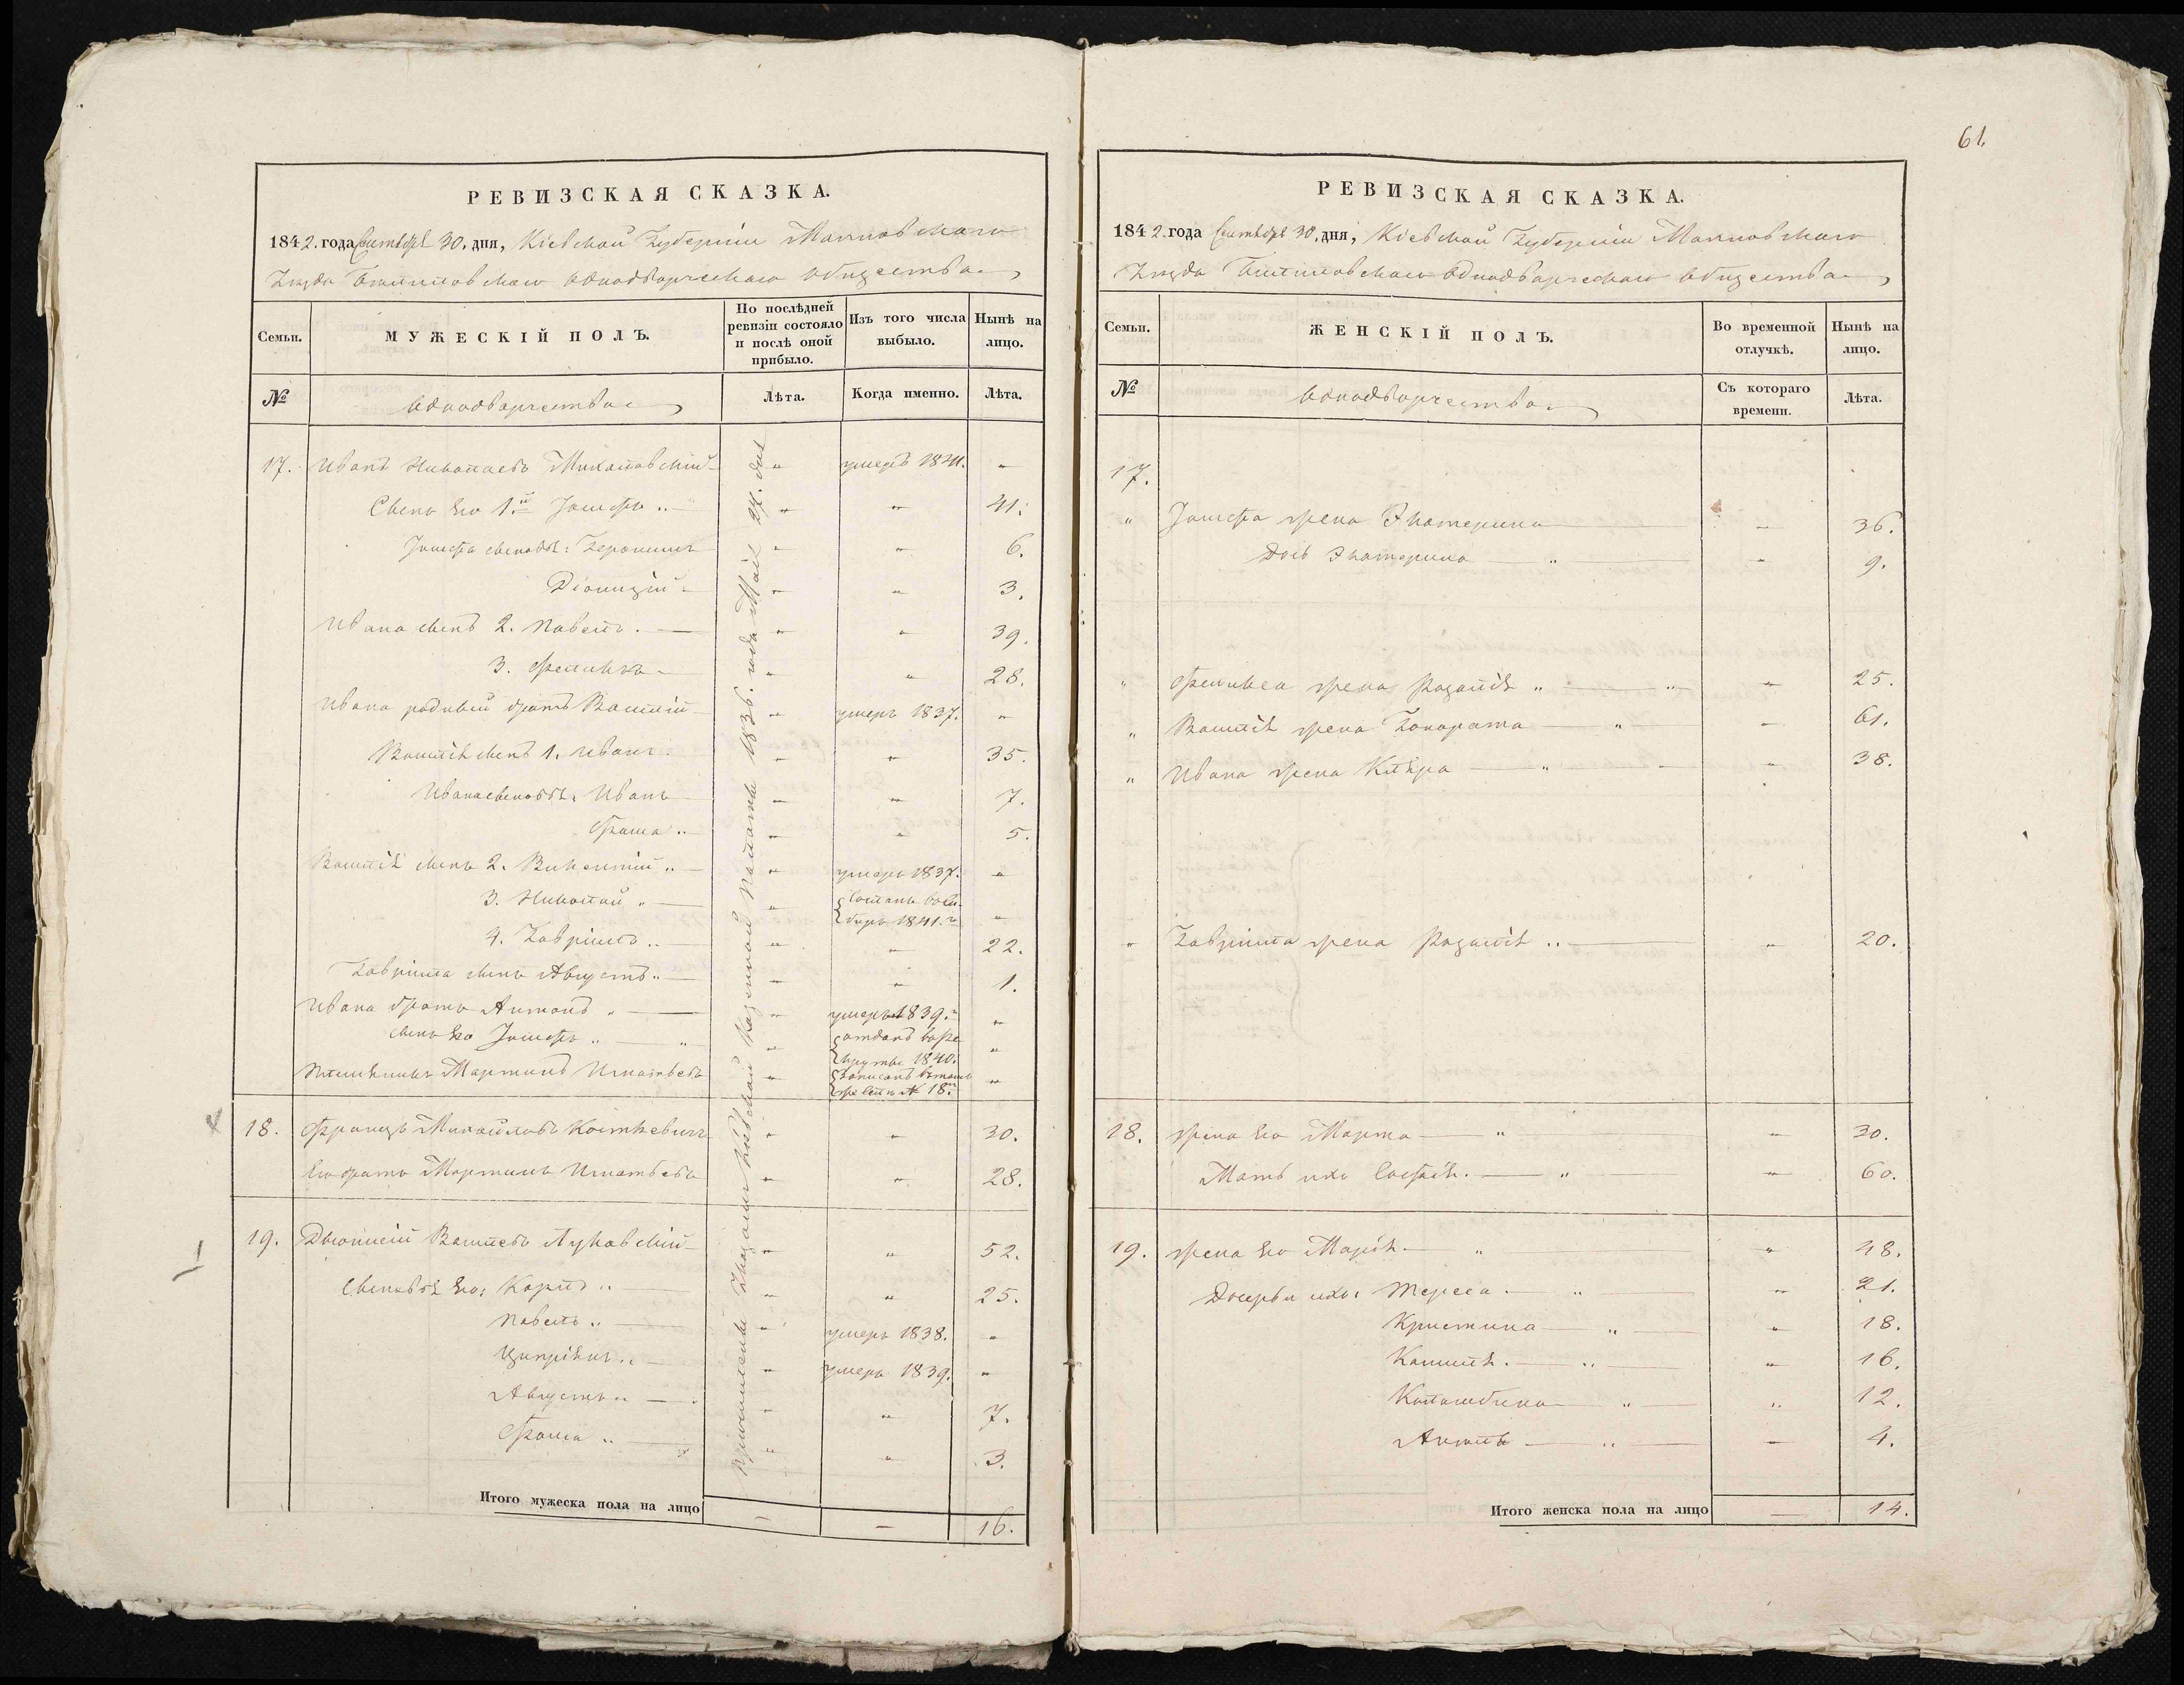 61.
РЕВИЗСКАЯ СКАЗКА.
1842. года Сентября 30. дня, Кіевской Губерніи Махновского
Уезда однодворческаго общества
Семьи. МУЖЕСКІЙ ПОЛЪ. По послѣдней ревизіи состояло и послѣ оной прибыло. Изъ того числа выбыло. Нынѣ на лицо.
№ Однодворчества Лѣта. Когда именно. Лѣта.
17. Иванъ Николаевъ Михаловскій " умеръ "
Сынъ Его 1.й Іосифъ " " 41.
Іосифа сыновья: Геронимъ " " 6.
Діонизій " " 3.
Ивана сынъ 2. Павелъ. " " 39.
3. Феликсъ " " 28.
Ивана родный братъ Василій " умеръ 1837. "
Василія сынъ 1. Иванъ " " 35.
Ивана сыновья: Иванъ " " 7.
Фома " " 5.
Василія сынъ 2. Викентій " умеръ 1837. "
3. Николай " Сосланъ въ Сибирь 1841. г "
4. Гавріилъ " " 22.
Гавріила сынъ Августъ " " 1.
Ивана братъ Антонъ " умеръ 1839. г "
сынъ Его Іосифъ " отданъ въ рекруты 1840. "
Племянникъ Мартинъ Игнатьевъ " Записанъ № 18.м "
18. Францъ Михайловъ " " 30.
Его братъ Мартинъ Игнатьевъ " " 28.
19. Діонисій Васильевъ Луковскій " " 52.
Сыновья Его: Карлъ " " 25.
Павелъ " умеръ 1838. "
Ципріянъ " умеръ 1839. "
Августъ " " 7.
Фома " " 3.
Причислены Указомъ Кіевской Казенной Палаты 1836. года Мая 27. дня
Итого мужеска пола на лицо — — 16.
РЕВИЗСКАЯ СКАЗКА.
1842. года Сентября 30. дня, Кіевской Губерніи Махновского
Уезда однодворческаго общества
Семьи. ЖЕНСКІЙ ПОЛЪ. Во временной отлучкѣ. Нынѣ на лицо.
№ Однодворчества Съ котораго времени. Лѣта.
17.
" Іосифа жена Екатерина " 36.
Дочь Екатерина " 9.
" Феликса жена Розалія " 25.
" Василія жена Гонората " 61.
" Ивана жена Кляра " 38.
" Гавріила жена Розалія " 20.
18. жена Его Марта " 30.
Мать ихъ Софія. " 60.
19. жена Его Марія " 48.
Дочери ихъ: Тереса " 21.
Кристина " 18.
16.
12.
" 4.
Итого женска пола на лицо — 14.